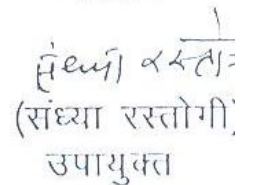 संध्या रस्तो
(संध्या रस्तोगी)
उपायुक्त